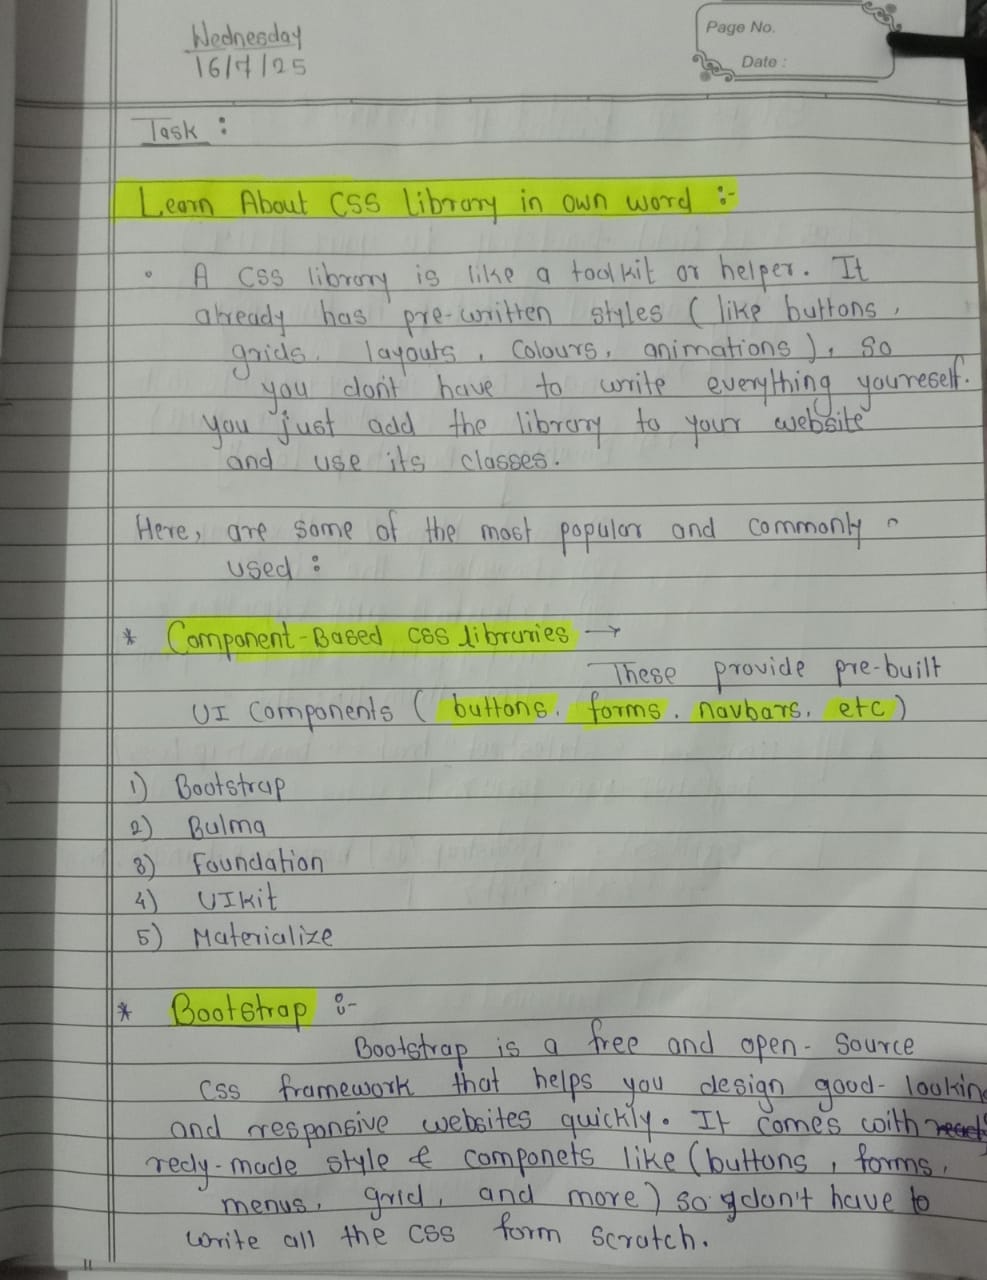 Wednesday
16/7/25
Page No.
Date :
Task :
Learn About CSS library in own word :-
• A CSS library is like a toolkit or helper. It
already has pre-written styles ( like buttons ,
grids, layouts , Colours, animations ), so
you don't have to write everything youreself.
you just add the library to your website
and use its classes.
Here, are some of the most popular and commonly
used :
* Component-Based CSS libraries →
These provide pre-built
UI Components ( buttons, forms, navbars, etc )
1) Bootstrap
2) Bulma
3) Foundation
4) UIkit
5) Materialize
* Bootstrap :-
Bootstrap is a free and open- Source
CSS framework that helps you design good- lookin
and responsive websites quickly. It comes with
redy-made style & componets like (buttons , forms,
menus, grid, and more ) so y don't have to
write all the CSS form Scratch.